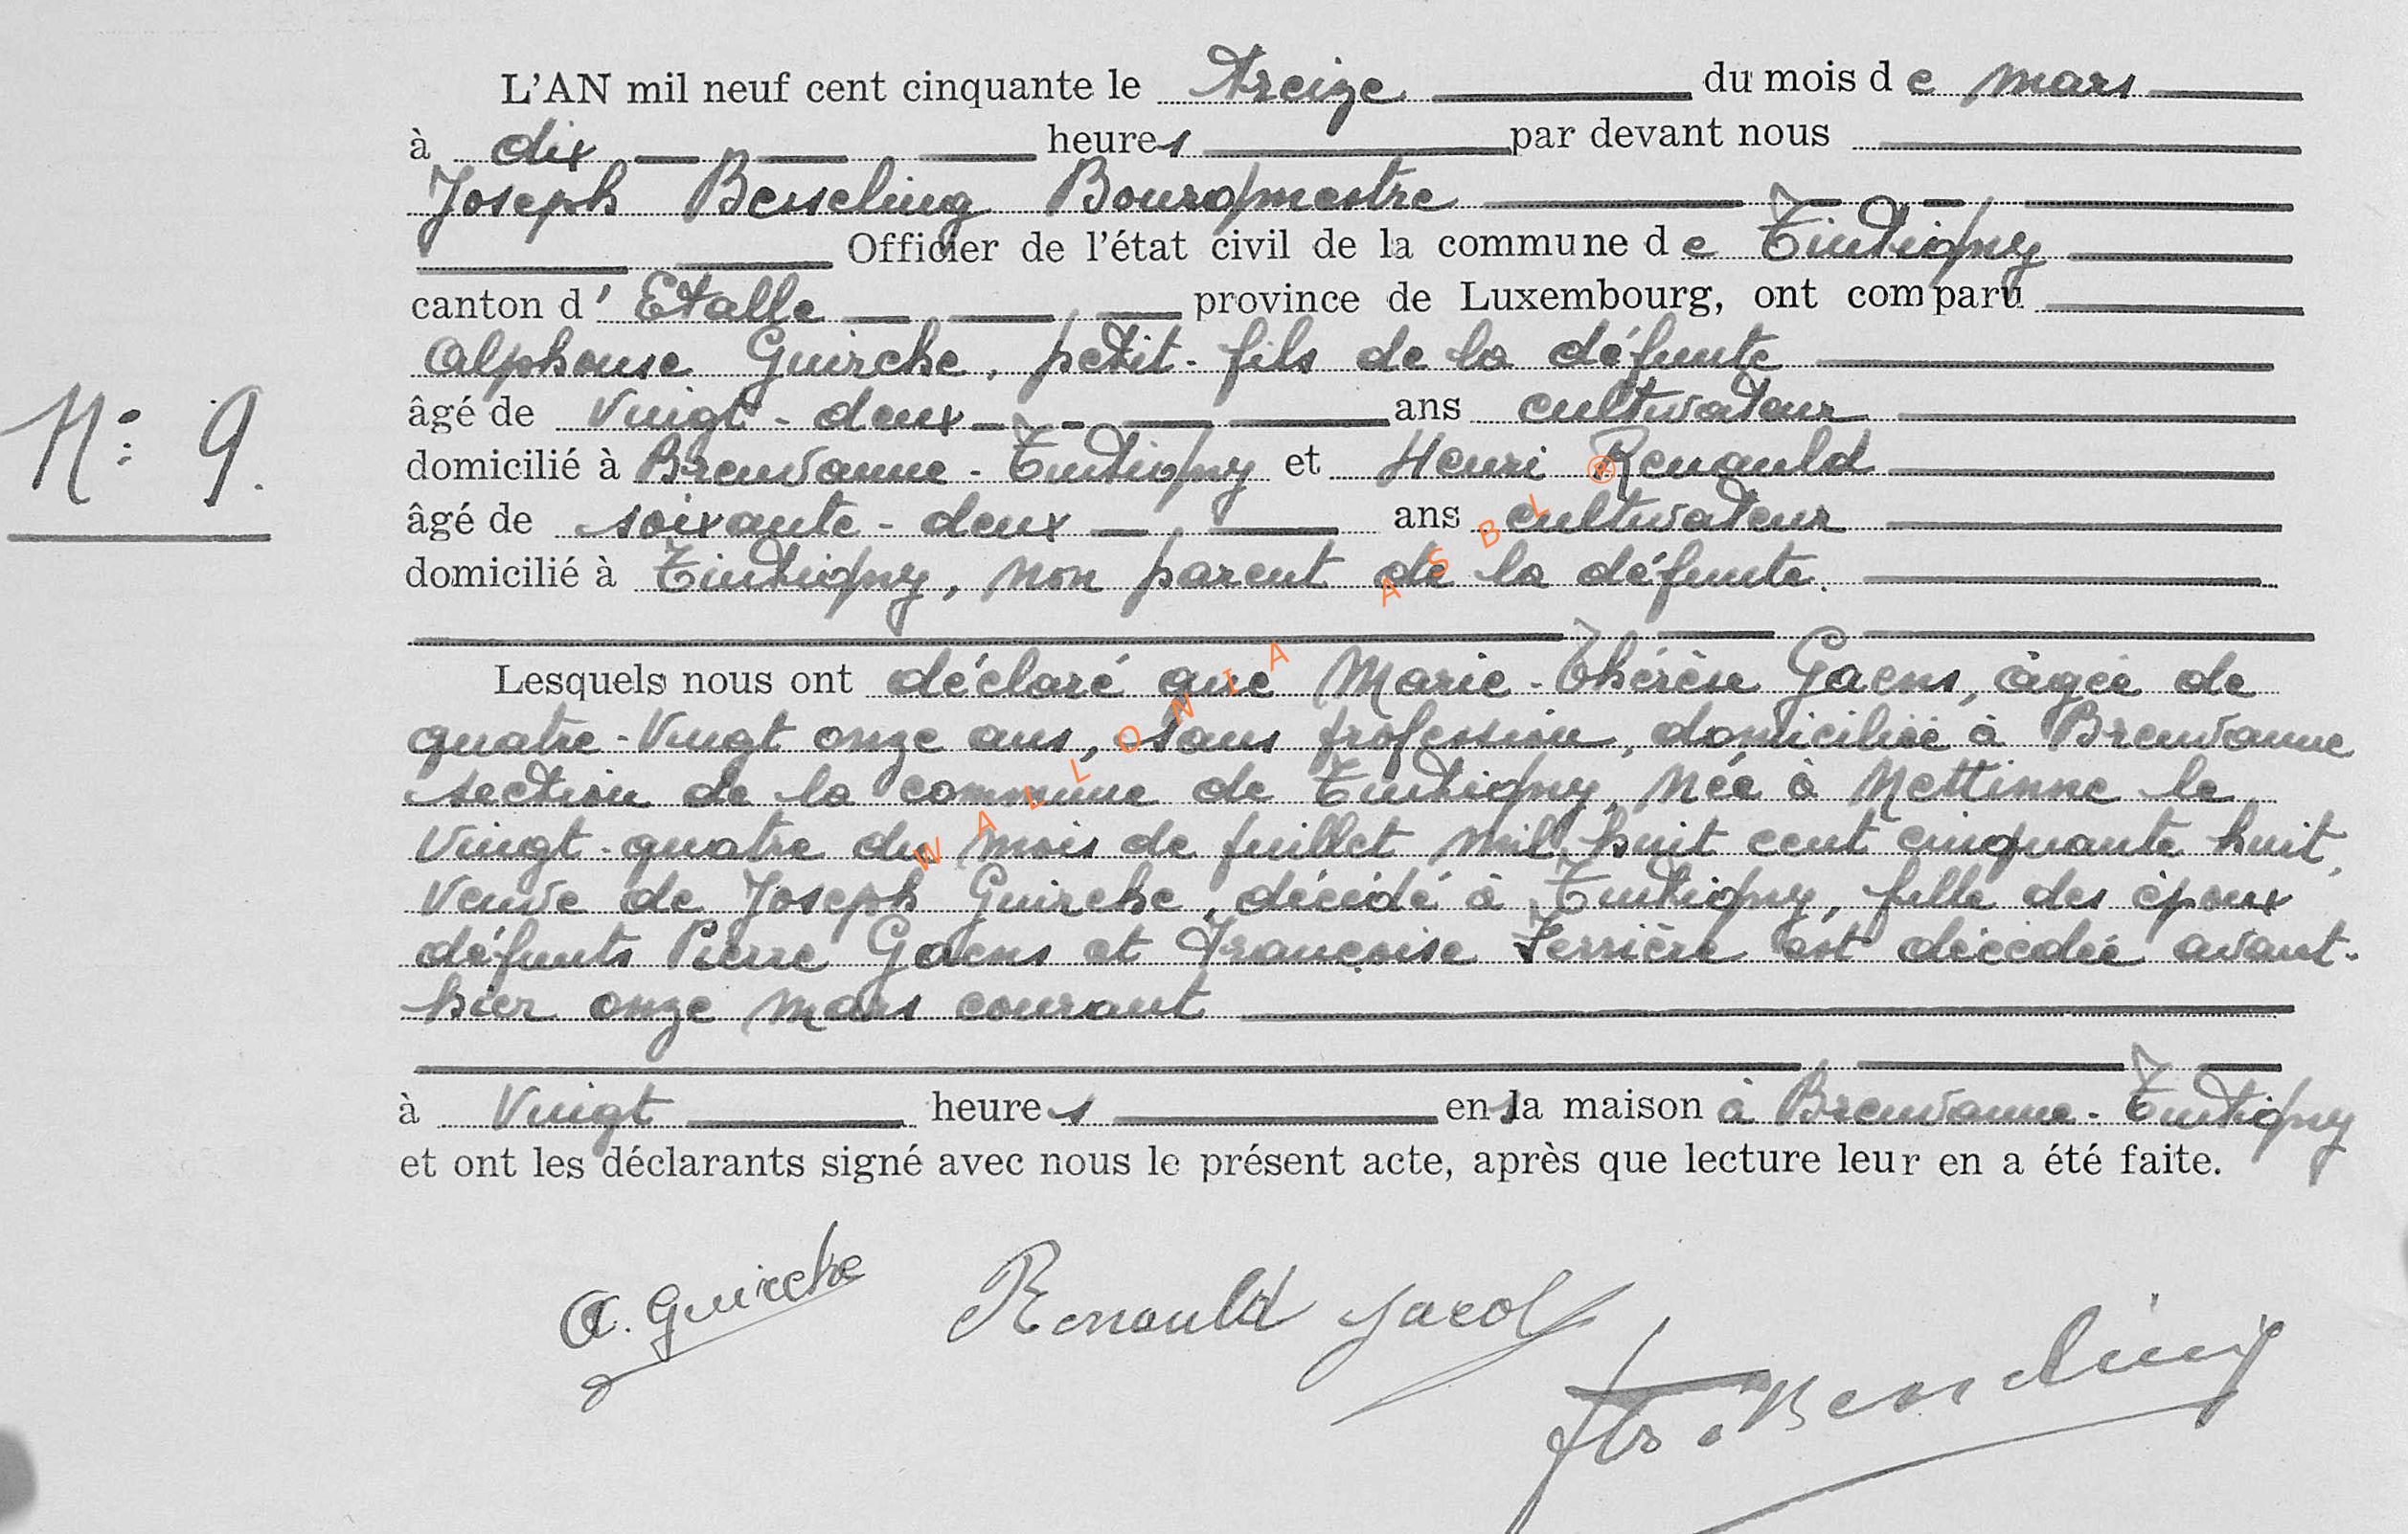 L'AN mil neuf cent cinquante le treize du mois de mars
à dix heures par devant nous
Joseph Besseling Bourgmestre
Officier de l'état civil de la commune de Tintigny
canton d'Etalle province de Luxembourg, ont comparu
Alphonse Guirche, petit-fils de la défunte
âgé de vingt-deux ans cultivateur
N° 9.
domicilié à Breuvanne-Tintigny et Henri Renauld
âgé de soixante-deux ans cultivateur
domicilié à Tintigny, non parent de la défunte.
Lesquels nous ont déclaré que Marie-Thérèse Gaens, âgée de
quatre-vingt onze ans, sans profession, domiciliée à Breuvanne
section de la commune de Tintigny, née à Mettinne le
vingt-quatre du mois de juillet mil huit cent cinquante huit,
veuve de Joseph Guirche, décédé à Tintigny, fille des époux
défunts Pierre Gaens et Françoise Ferrière est décédée avant-
hier onze mars courant
à vingt heures en la maison à Breuvanne-Tintigny
et ont les déclarants signé avec nous le présent acte, après que lecture leur en a été faite.
A. Guirche Renauld Jacob
Besseling
WALLONIA ASBL ®